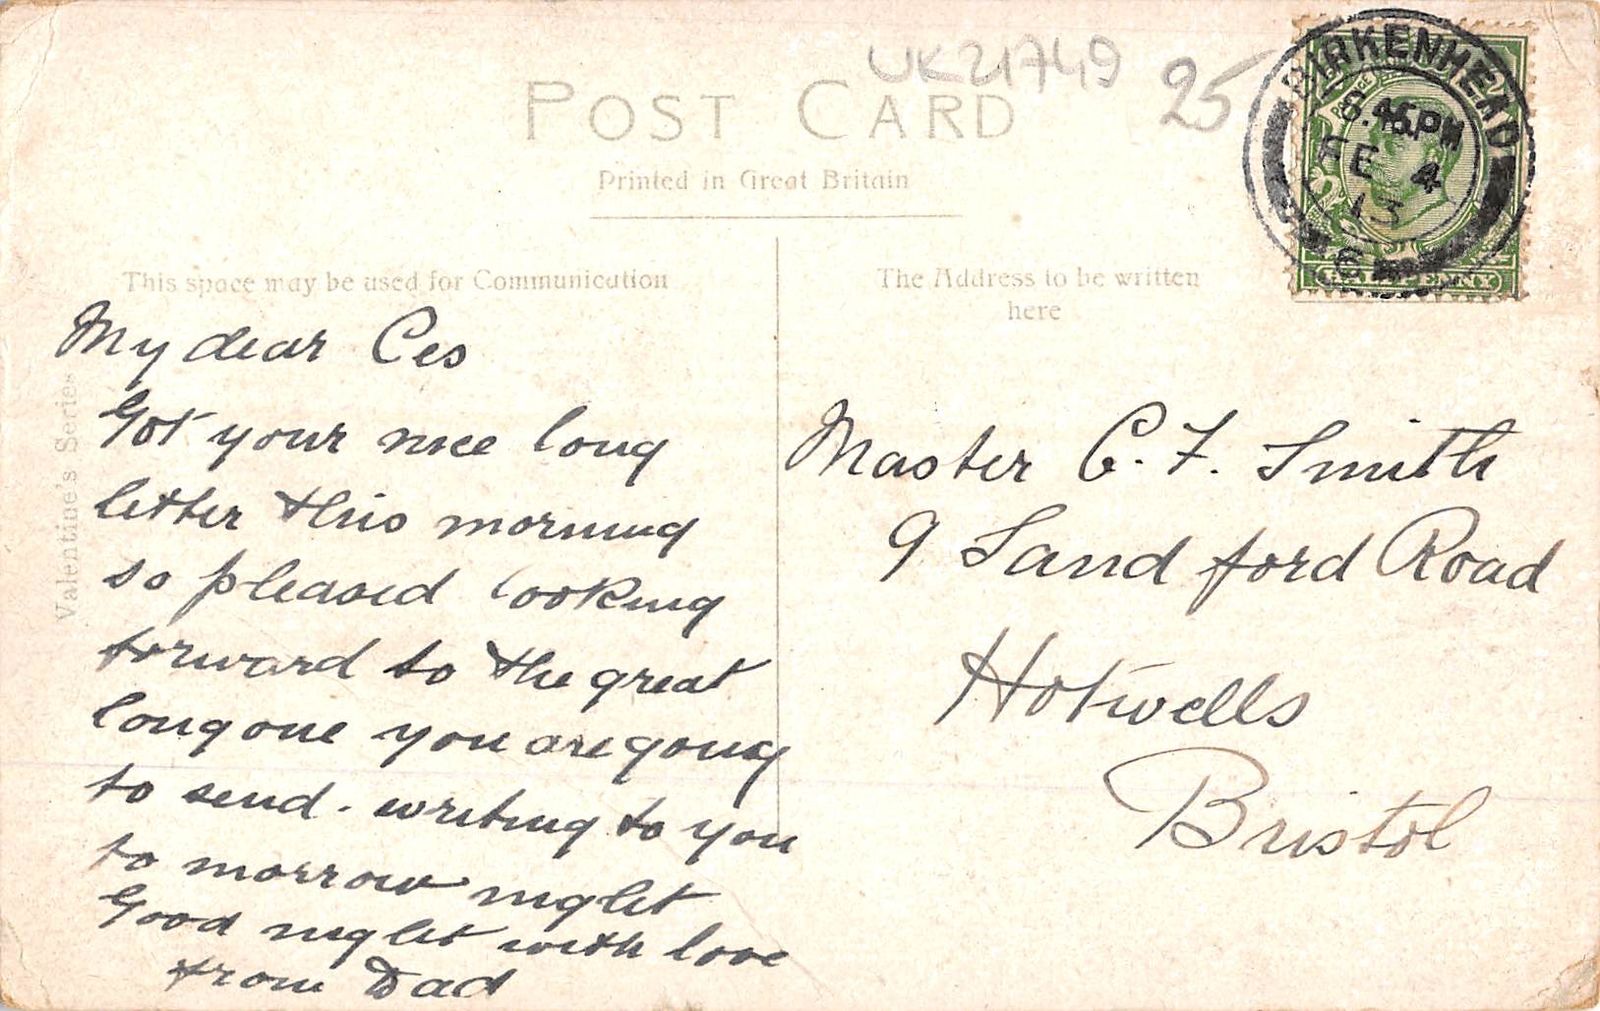 UK21749 25
POST CARD
Printed in Great Britain
BIRKENHEAD
8.45PM
FE 4
13
HALFPENNY
This space may be used for Communication
The Address to be written
here
Valentine's Series
My dear Ces
Got your nice long
letter this morning
so pleased looking
forward to the great
long one you are going
to send. writing to you
to morrow night
Good night with love
from Dad
Master C. F. Smith
9 Sandford Road
Hotwells
Bristol